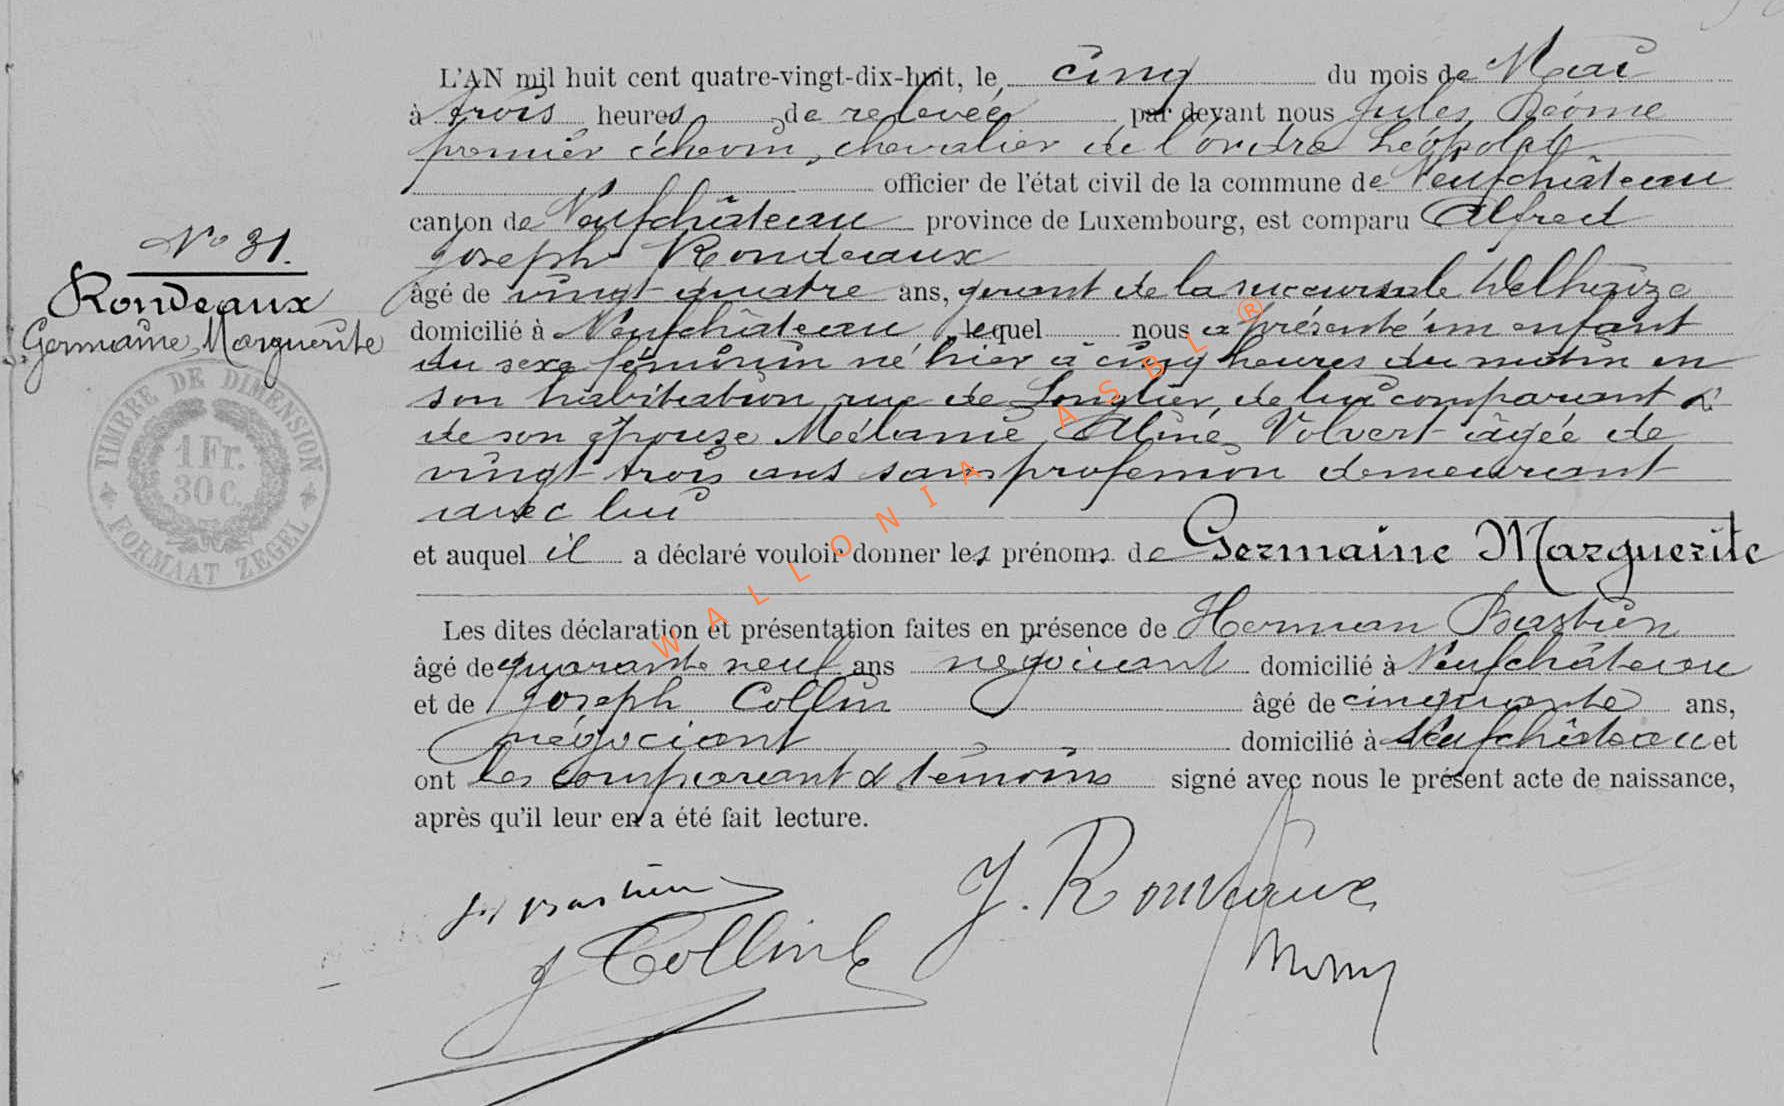 L'AN mil huit cent quatre-vingt-dix-huit, le cinq du mois de Mai
à trois heures de relevée par devant nous Jules
premier échevin, chevalier de l'ordre Léopold
officier de l'état civil de la commune de Neufchâteau
canton de Neufchâteau province de Luxembourg, est comparu Alfred
Joseph Rondeaux
âgé de vingt-quatre ans, gérant de la succursale Delhaize
domicilié à Neufchâteau, lequel nous a présenté un enfant
du sexe féminin né hier à cinq heures du matin en
son habitation rue de Longlier, de lui comparant &
de son épouse Mélanie Aline Volvert âgée de
vingt-trois ans sans profession demeurant
avec lui
et auquel il a déclaré vouloir donner les prénoms de Germaine Marguerite
Les dites déclaration et présentation faites en présence de Herman Bastien
âgé de quarante neuf ans négociant domicilié à Neufchâteau
et de Joseph Collin âgé de cinquante ans,
négociant domicilié à Neufchâteau et
ont les comparant & témoins signé avec nous le présent acte de naissance,
après qu'il leur en a été fait lecture.
N° 31.
Rondeaux
Germaine, Marguerite
TIMBRE DE DIMENSION
1 Fr.
30 C.
FORMAAT ZEGEL
WALLONIA ASBL ®
Bastien
J. Rondeaux
J Collin